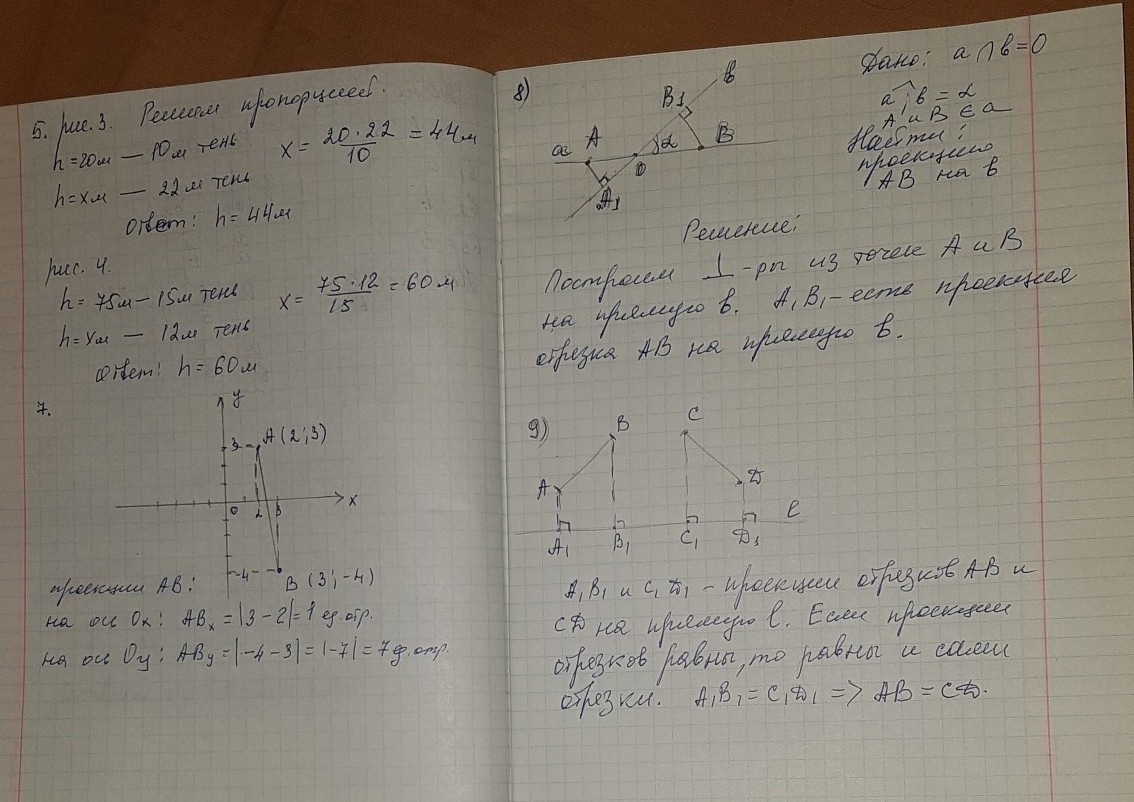 5. рис. 3. Решаем пропорцией.
h=20м — 10м тень
x = 20·22/10 = 44м
h=xм — 22м тень
Ответ: h=44м
рис. 4.
h= 75м — 15м тень
x = 75·12/15 = 60м
h=xм — 12м тень
Ответ: h= 60м
7.
y
3
A (2; 3)
0
2
3
x
-4
B (3; -4)
проекции AB:
на ось Ox: ABx = |3-2| = 1 ед.отр.
на ось Oy: ABy = |-4-3| = |-7| = 7 ед.отр.
8)
a A O α B B1 в A1
Дано: a ∩ в = O
a^в = α
A и B ∈ a
Найти:
проекцию
AB на в
Решение:
Построим ⊥-ры из точек A и B
на прямую в. A1B1 - есть проекция
отрезка AB на прямую в.
9)
B C
A Д
A1 B1 C1 Д1 ℓ
A1B1 и C1Д1 - проекции отрезков AB и
CД на прямую ℓ. Если проекции
отрезков равны, то равны и сами
отрезки. A1B1 = C1Д1 => AB = CД.